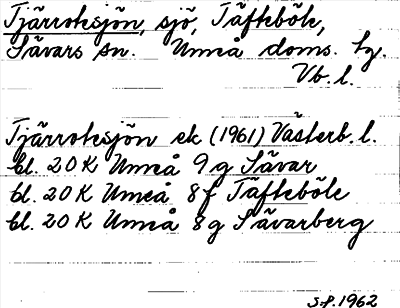 Tjärroksjön, sjö, Täfteböle,
Sävars sn. Umeå doms. tg.
Vb. l.
Tjärroksjön ek (1961) Västerb. l.
bl. 20 K Umeå 9 g Sävar
bl. 20 K Umeå 8 f Täfteböle
bl. 20 K Umeå 8 g Sävarberg
S.P. 1962